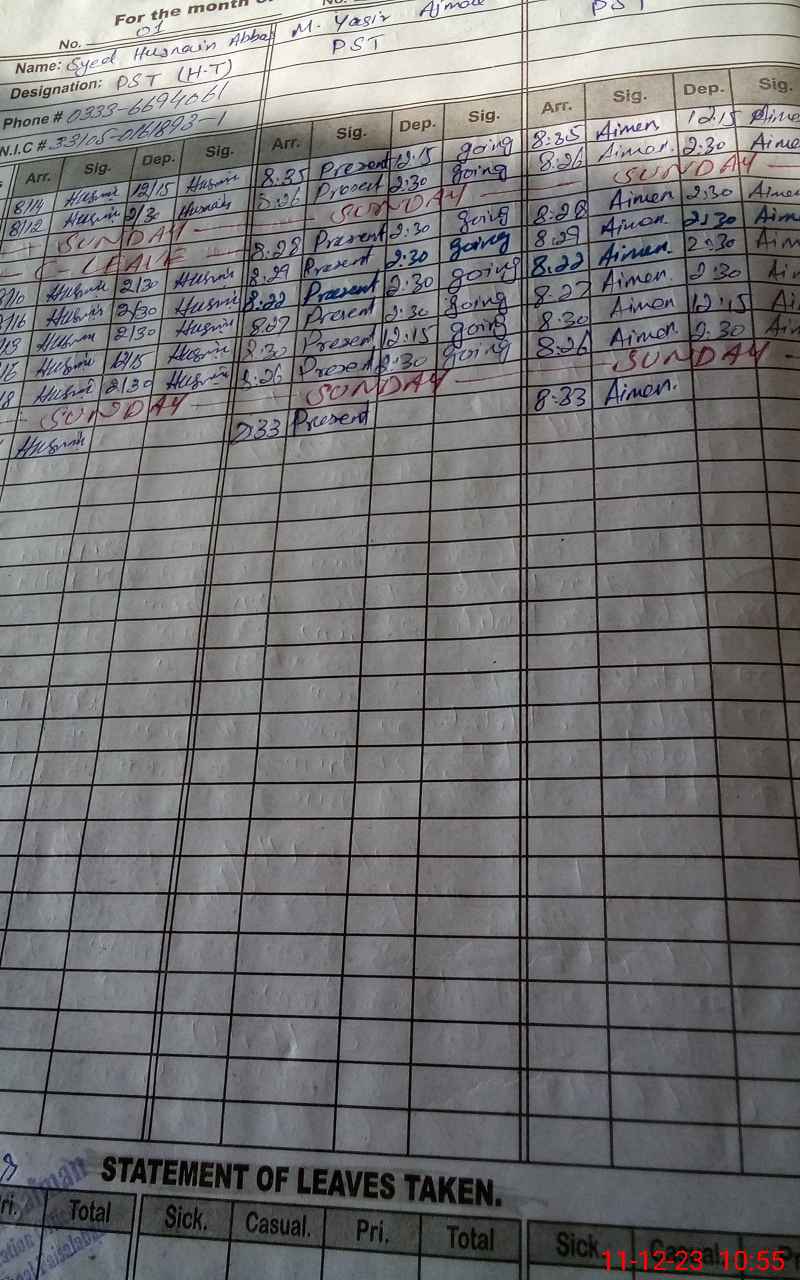 For the month
No. 01
No.
Name: Syed Husnain Abbas M. Yasir Ajmal
Designation: PST (H-T) PST PST
Phone # 0333-6694061
N.I.C # 33105-0161893-1
Arr. Sig. Dep. Sig. Arr. Sig. Dep. Sig. Arr. Sig. Dep. Sig.
8/14 Husnain 12/15 Husnain 8:35 Present 12:15 going 8:35 Aimen 12:15 Aimen
8/12 Husnain 2/30 Husnain 8:26 Present 2:30 going 8:26 Aimen. 2:30 Aimen
SUNDAY SUNDAY SUNDAY
C- LEAVE 8:28 Present 2:30 going 8:28 Aimen 2:30 Aimen
8/10 Husnain 2/30 Husnain 8:29 Present 2:30 going 8:29 Aimen 2:30 Aimen
Husnain 2/30 Husnain 8:22 Present 2:30 going 8:22 Aimen. 2:30
Husnain 2/30 Husnain 8:27 Present 2:30 going 8:27 Aimen. 2:30
Husnain 12/15 Husnain 8:30 Present 12:15 going 8:30 Aimen 12:15
Husnain 2/30 Husnain 8:26 Present 2:30 going 8:26 Aimen 2:30
SUNDAY SUNDAY SUNDAY
Husnain 8:33 Present 8:33 Aimen.
STATEMENT OF LEAVES TAKEN.
Pri. Total Sick. Casual. Pri. Total Sick. Casual.
11-12-23 10:55